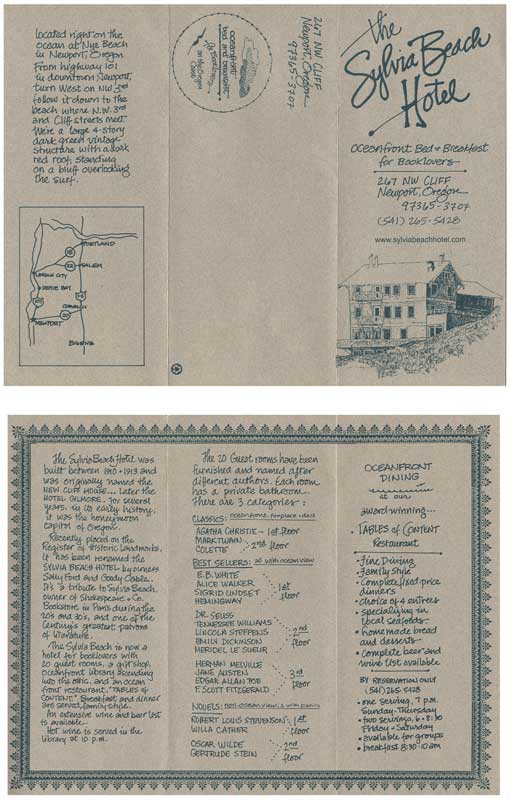 located right on the
ocean at Nye Beach
in Newport, Oregon
From highway 101
in downtown Newport,
turn West on NW 3rd
follow it down to the
beach where N.W. 3rd
and Cliff streets meet.
We're a large 4-story
dark green vintage
structure with a dark
red roof, standing
on a bluff overlooking
the surf.
PORTLAND
SALEM
LINCOLN CITY
DEPOE BAY
CORVALLIS
NEWPORT
EUGENE
oceanfront
bed and breakfast
for Booklovers
on the Oregon
Coast
267 NW CLIFF
Newport, Oregon
97365-3707
the
Sylvia Beach
Hotel
Oceanfront Bed & Breakfast
for Booklovers
267 NW CLIFF
Newport, Oregon
97365-3707
(541) 265-5428
www.sylviabeachhotel.com
The Sylvia Beach Hotel was
built between 1910 & 1913 and
was originally named the
NEW CLIFF HOUSE... Later the
HOTEL GILMORE. For several
years, in its early history,
it was the honeymoon
capitol of Oregon.
Recently placed on the
Register of Historic Landmarks,
it has been renamed the
SYLVIA BEACH HOTEL by owners
Sally Ford and Goody Cable.
It's a tribute to Sylvia Beach,
owner of Shakespeare & Co.
Bookstore in Paris during the
20's and 30's, and one of the
Century's greatest patrons
of literature.
The Sylvia Beach is now a
hotel for booklovers with
20 guest rooms, a gift shop,
oceanfront library ascending
into the attic, and an ocean
front restaurant, "TABLES of
CONTENT". Breakfast and dinner
are served family style.
An extensive wine and beer list
is available.
Hot wine is served in the
library at 10 p.m.
The 20 Guest rooms have been
furnished and named after
different authors. Each room
has a private bathroom.
There are 3 categories:
CLASSICS: oceanfront, fireplace & deck
AGATHA CHRISTIE - 1st floor
MARK TWAIN
COLETTE 2nd floor
BEST SELLERS: all with oceanview
E.B. WHITE
ALICE WALKER
SIGRID UNDSET
HEMINGWAY
1st
floor
DR. SEUSS
TENNESSEE WILLIAMS
LINCOLN STEFFENS
EMILY DICKINSON
MERIDEL LE SUEUR
2nd
floor
HERMAN MELVILLE
JANE AUSTEN
EDGAR ALLAN POE
F. SCOTT FITZGERALD
3rd
floor
NOVELS: non-oceanview,
ROBERT LOUIS STEVENSON
WILLA CATHER
1st
floor
OSCAR WILDE
GERTRUDE STEIN
2nd
floor
OCEANFRONT
DINING
at ours
award-winning...
TABLES of CONTENT
Restaurant
• Fine Dining
• Family Style
• Complete, fixed price
dinners
• choice of 4 entrees
• specializing in
local seafoods
• homemade bread
and desserts
• complete beer and
wine list available
BY RESERVATION ONLY
(541) 265-5428
• one serving, 7 p.m.
Sunday-Thursday
• two servings, 6 & 8:30
Friday & Saturday
• available for groups
• breakfast 8:30-10 am